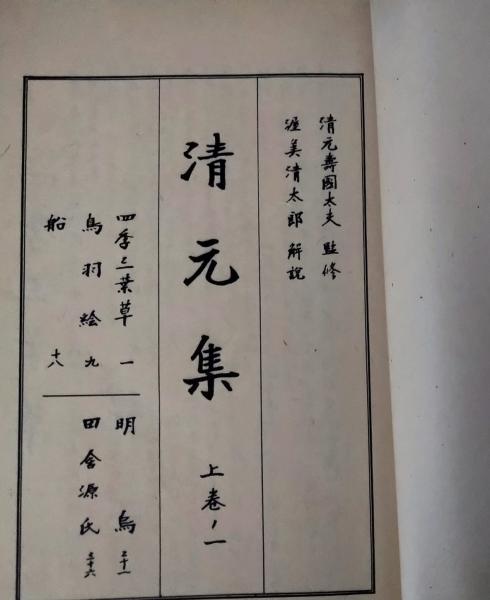 清元壽國太夫 監修
渥美清太郎 解説
清元集 上巻ノ一
四季三葉草 一
鳥羽絵 九
船 十八
明烏 三十一
田舎源氏 三十六